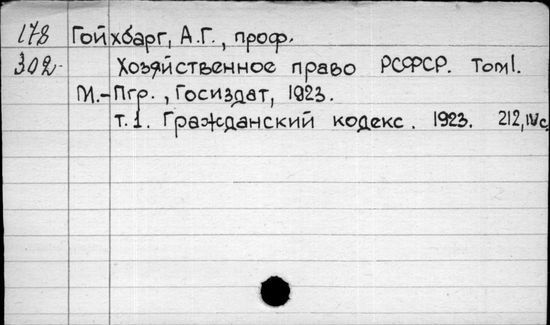 178 Гойхбарг, А.Г., проф.
302 Хозяйственное право РСФСР. Том I.
М.-Пгр., Госиздат, 1923.
т.1. Гражданский кодекс. 1923. 212, IV с